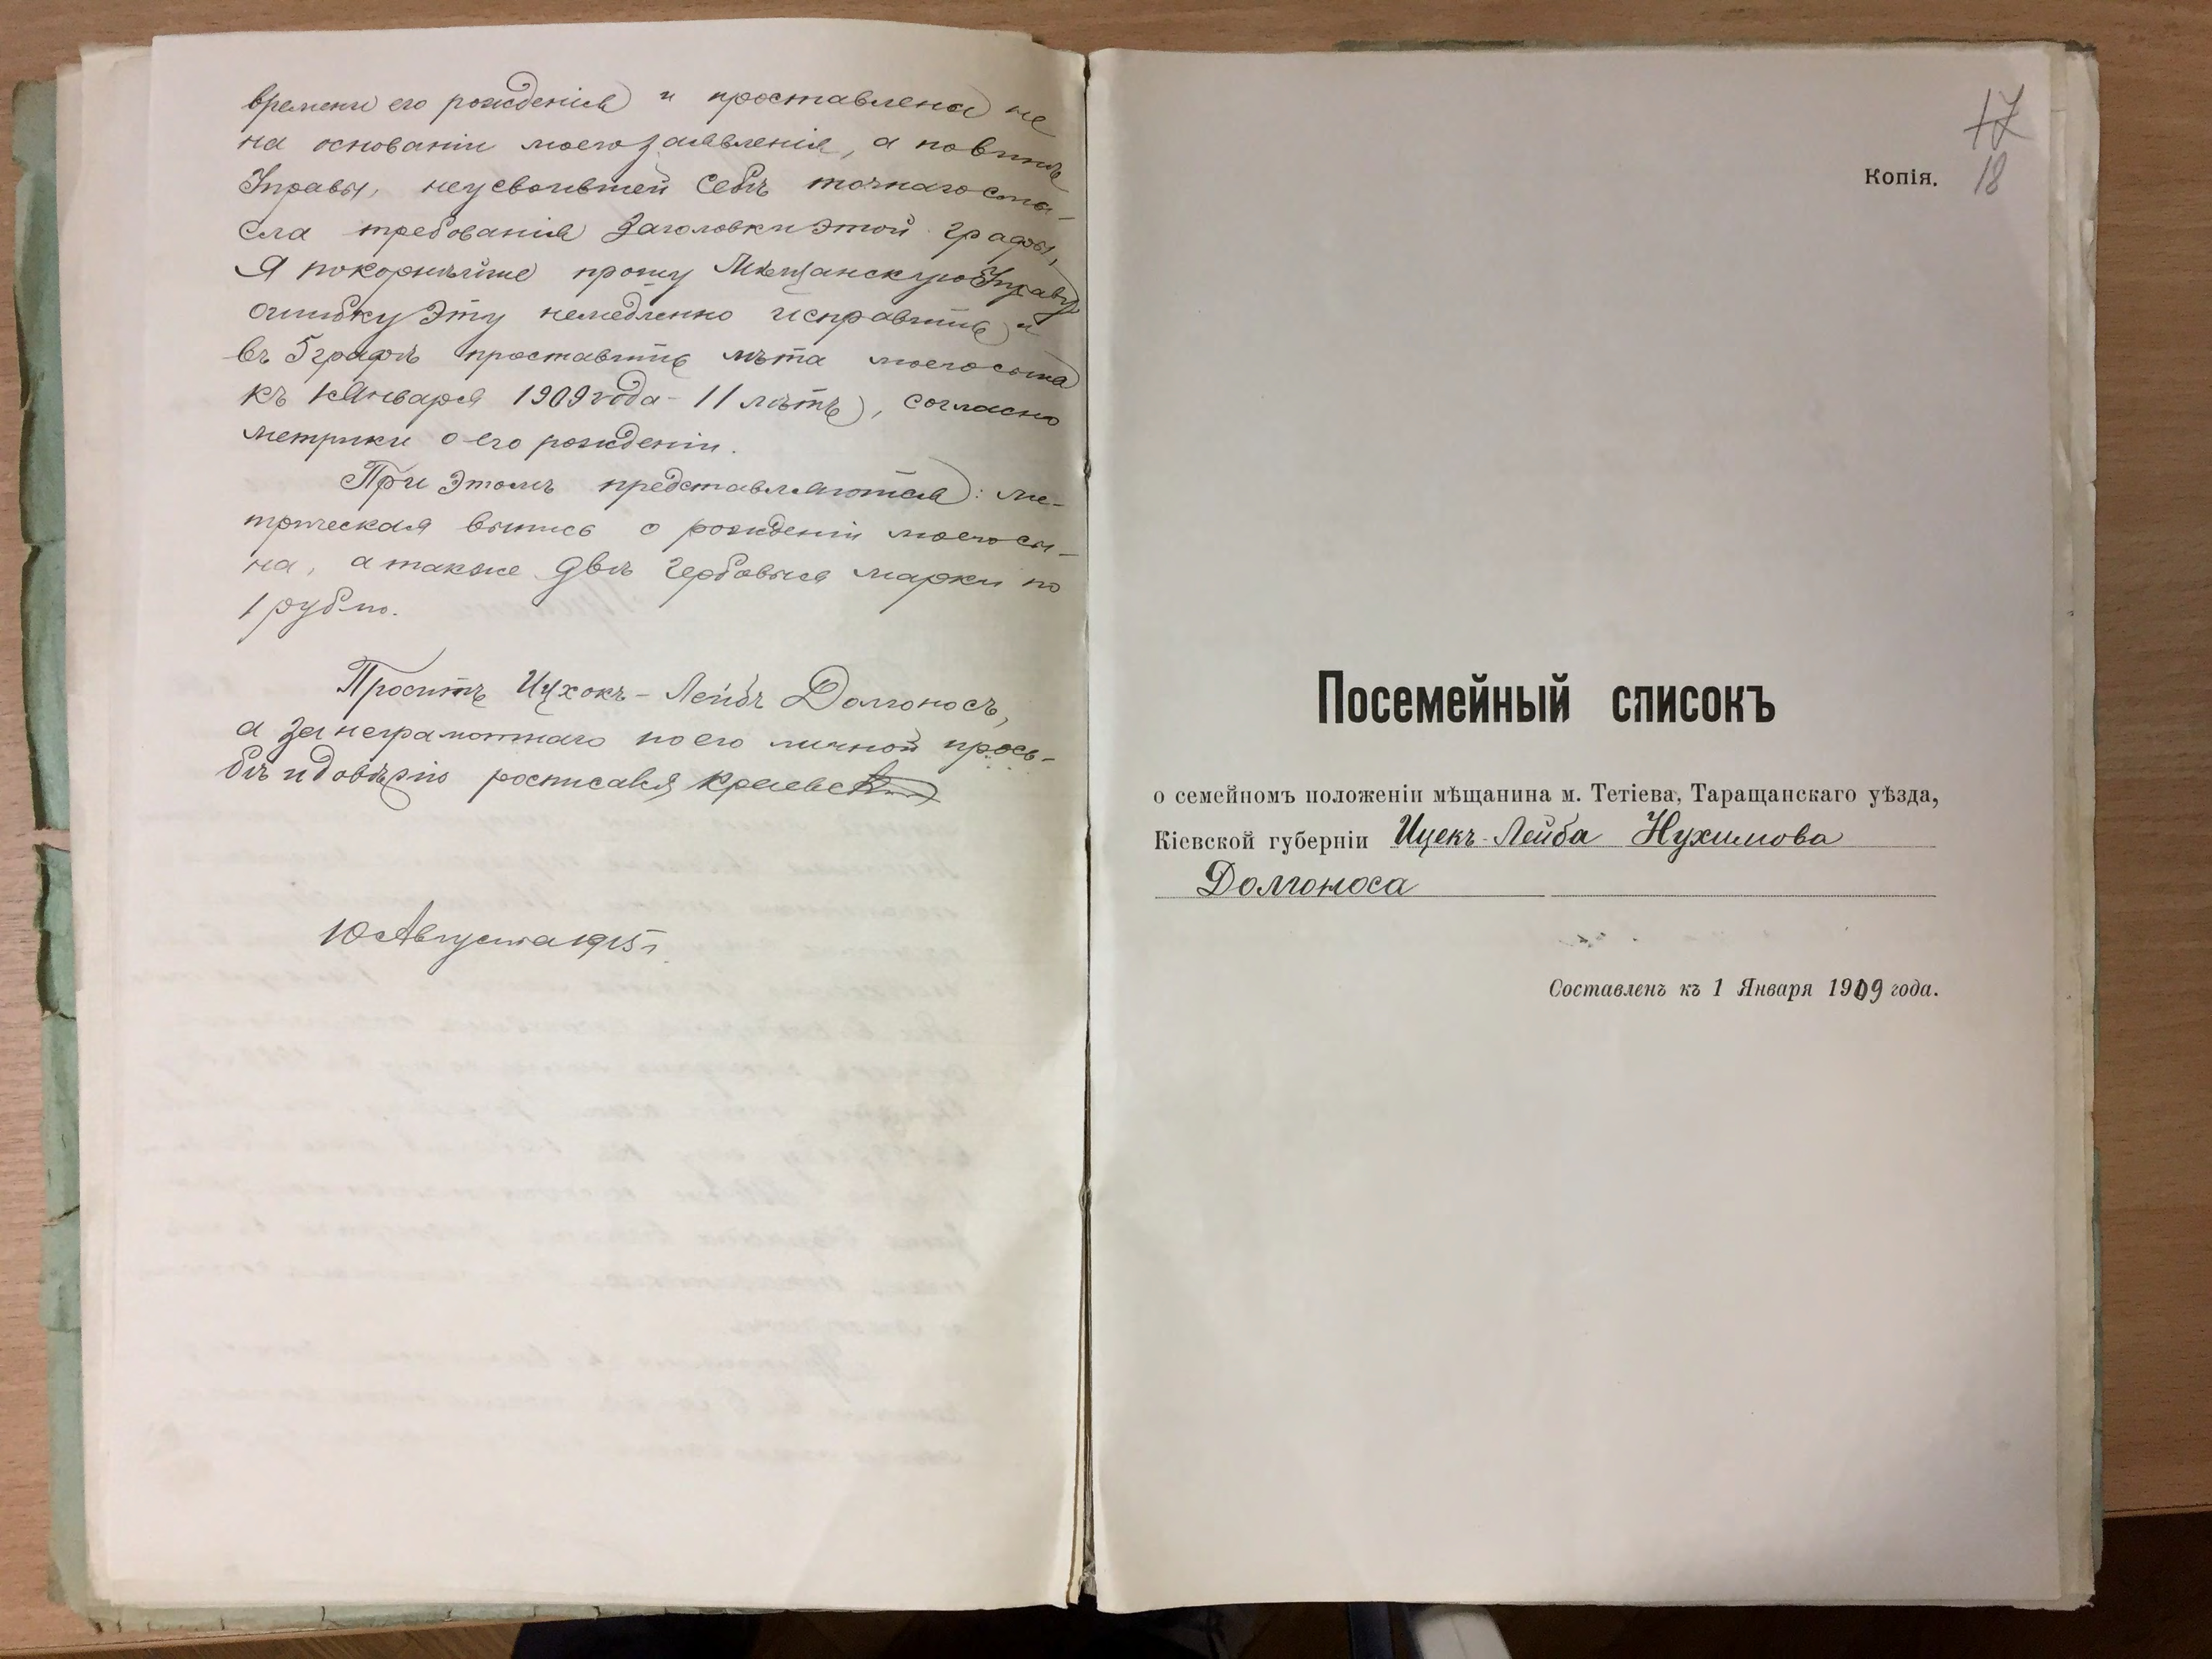 времени его рожденія и проставлена не
на основаніи моего заявленія, а по винѣ
Управы, неусвоившей себѣ точнаго смы-
сла требованія заголовки этой графы,
Я покорнѣйше прошу Мѣщанскую Управу
ошибку эту немедленно исправить и
въ 5 графѣ проставить лѣта моего сына
къ 1 Января 1909 года - 11 лѣтъ, согласно
метрики о его рожденіи.
При этомъ представляются: ме-
трическая выпись о рожденіи моего сы-
на, а также двѣ гербовыя марки по
1 рублю.
Проситъ Ицхокъ-Лейбъ Долгоносъ,
а за неграмотнаго по его личной прось-
бѣ и довѣрію росписался
10 Августа 1915 г.
17
18
Копія.
Посемейный списокъ
о семейномъ положеніи мѣщанина м. Тетіева, Таращанскаго уѣзда,
Кіевской губерніи Ицекъ-Лейба Нухимова
Долгоноса
Составленъ къ 1 Января 1909 года.